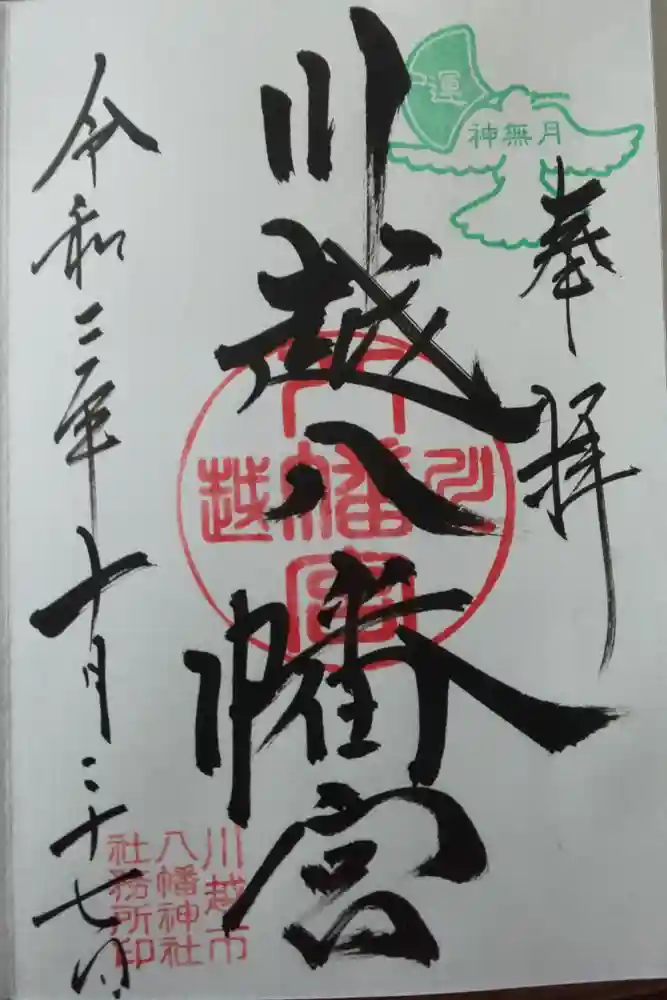 運
神無月
奉拝
川越八幡宮
川越
八幡宮
令和二年十月二十七日
川越市
八幡神社
社務所印